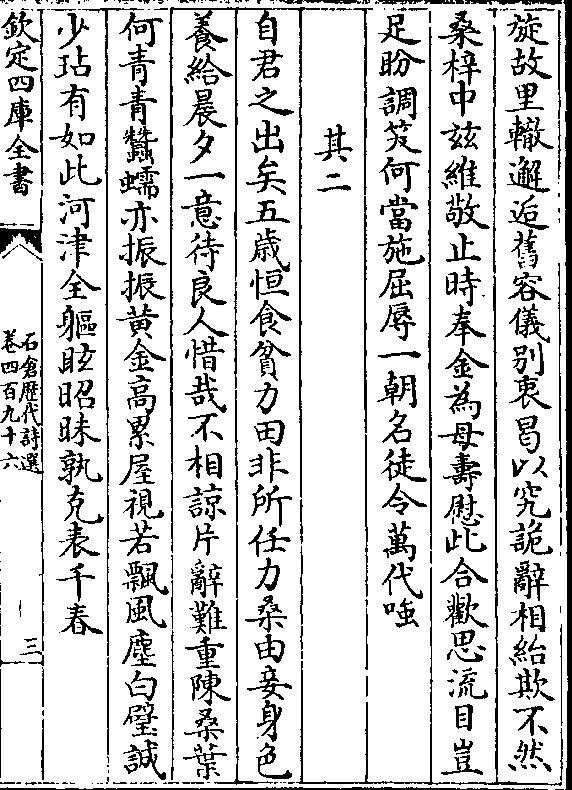 旋故里轍邂逅舊容儀别衷曷以究詭辭相紿欺不然
桑梓中兹維敬止時奉金為母壽慰此合歡思流目豈
足盼調笑何當施屈辱一朝名徒令萬代嗤
其二
自君之出矣五歲恒食貧力田非所任力桑由妾身色
養給晨夕一意待良人惜哉不相諒片辭難重陳桑葉
何青青蠶蠕亦振振黄金高累屋視若飄風塵白璧誠
少玷有如此河津全軀眩昭昧孰克表千春
欽定四庫全書
石倉歷代詩選
卷四百九十六
三